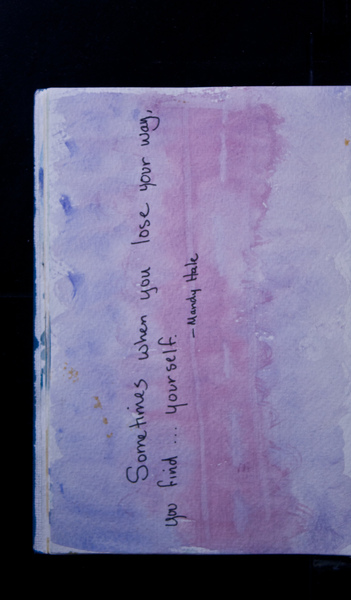 Sometimes when you lose your way,
you find ... yourself.
—Mandy Hale